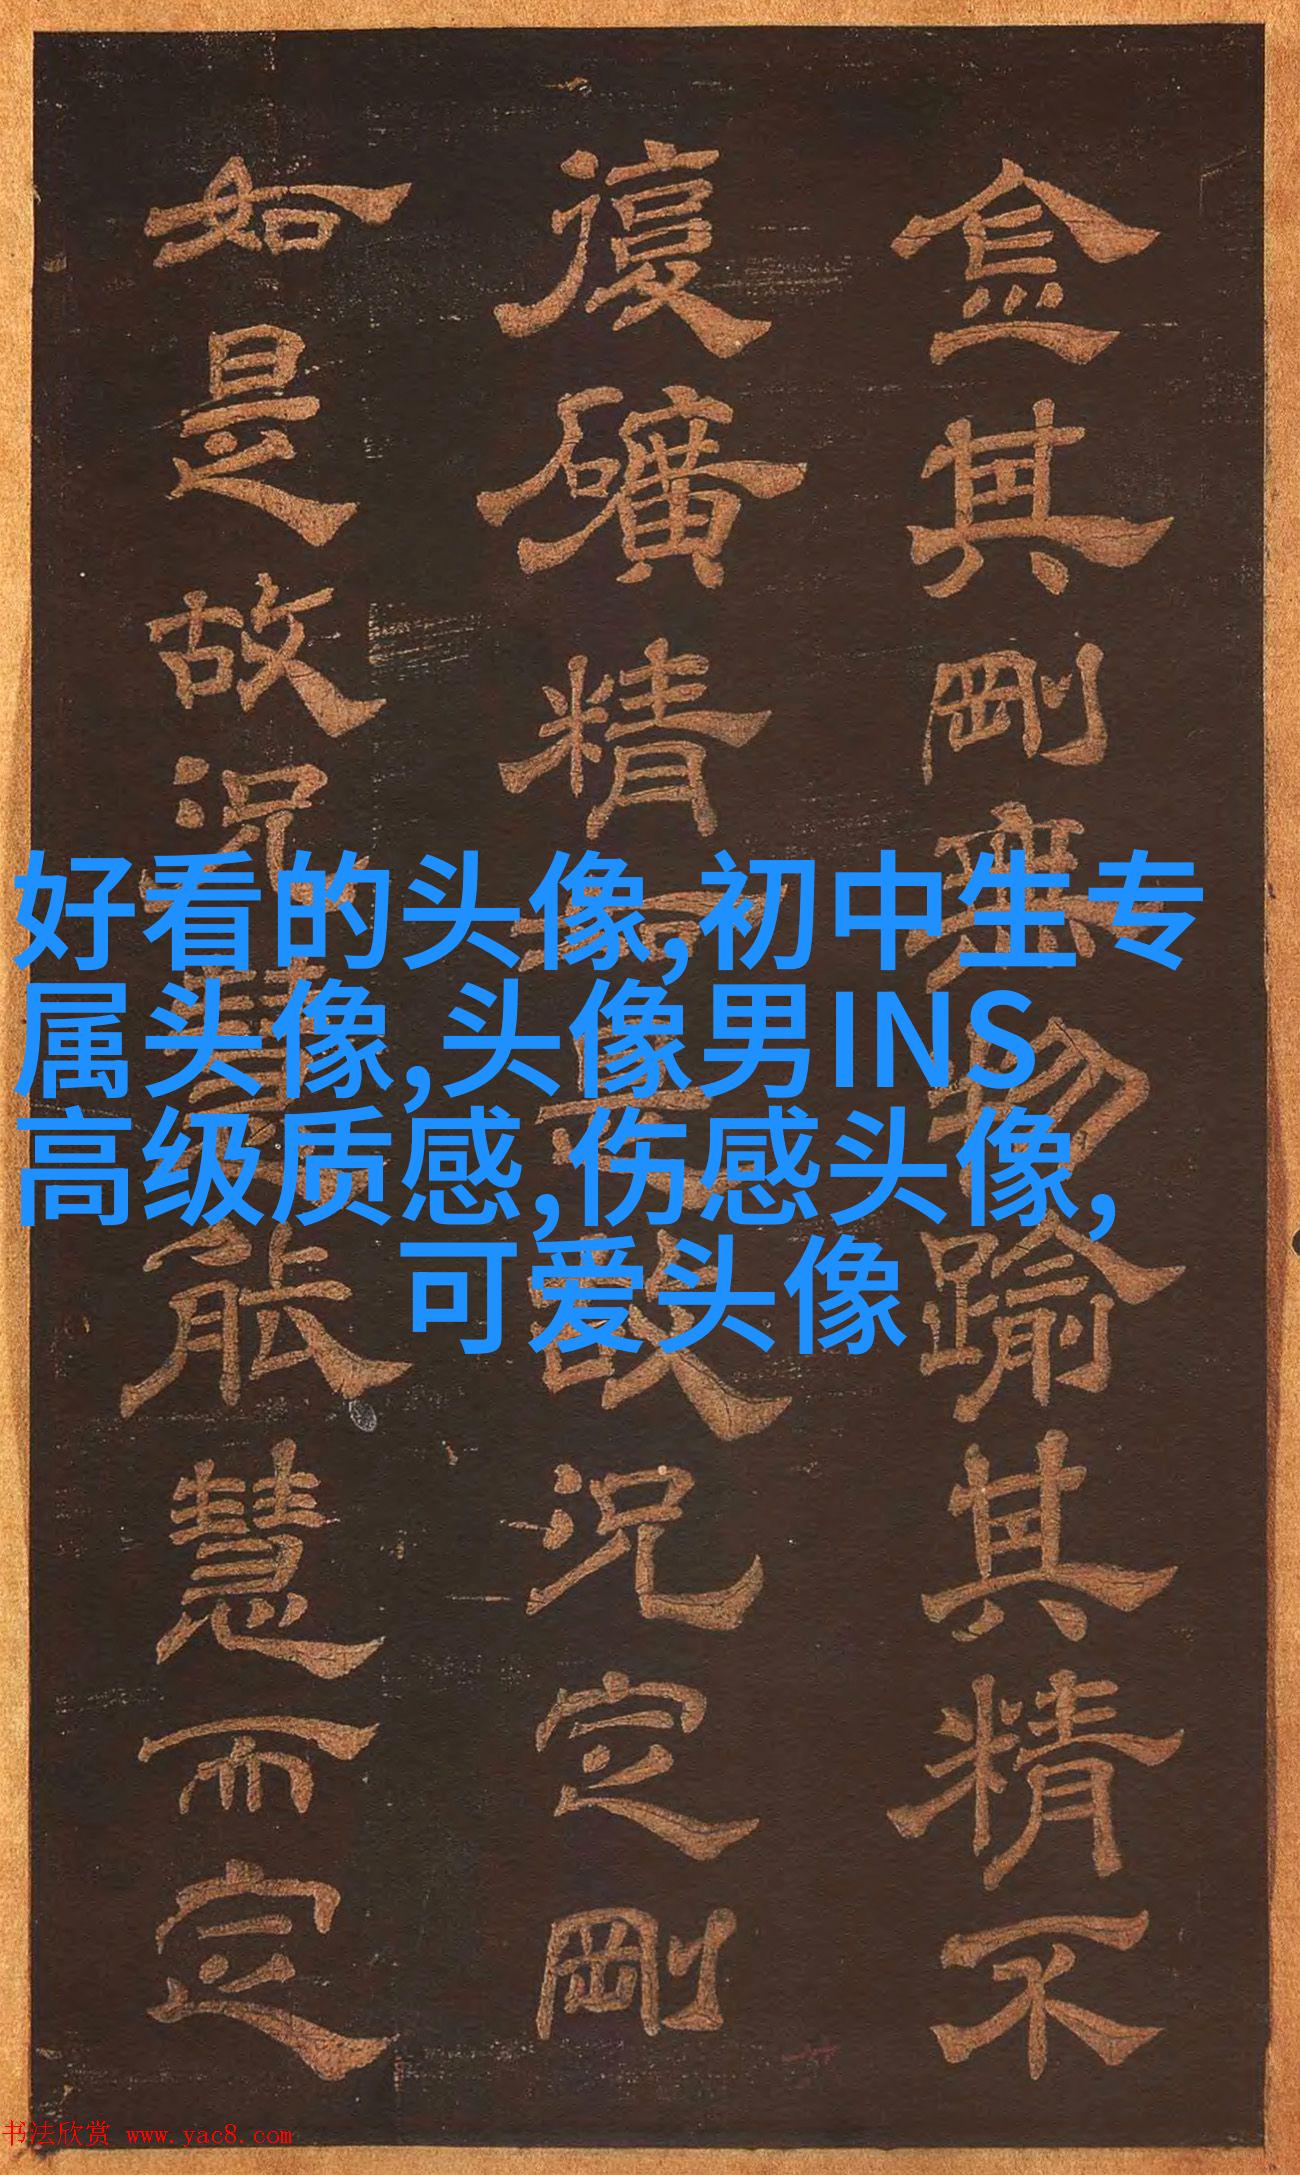 金其剛無物踰其精不
復礦精故況定剛
如是故況能慧而定
好看的头像,初中生专
属头像,头像男INS
高级质感,伤感头像,
可爱头像
书法欣赏 www.yac8.com